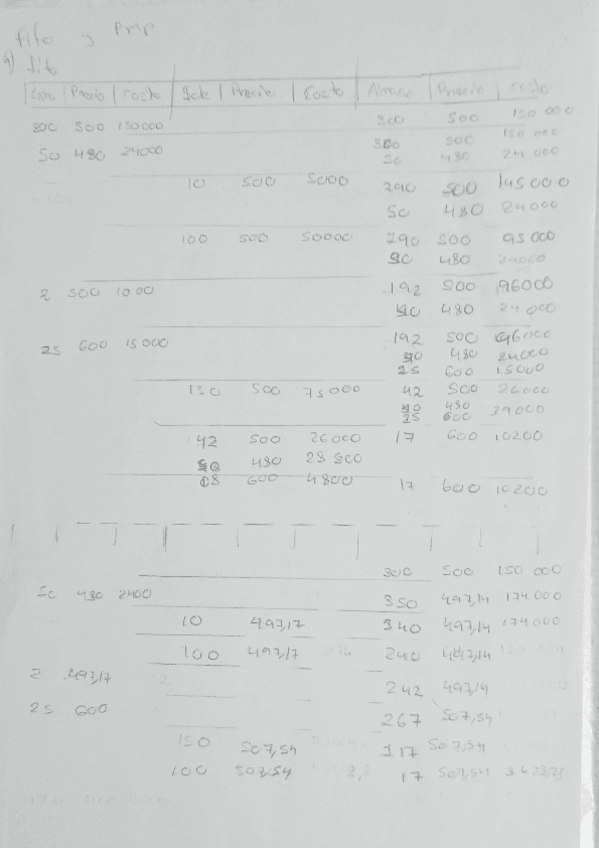 fifo y PMP
a) fifo
Precio Costo Precio Costo Precio Costo
300 500 150000 300 500 150 000
50 480 24000 300 500 150 000
50 480 24 000
10 500 5000 290 500 145000
50 480 24000
100 500 50000 290 500 95 000
50 480 24000
2 500 1000 192 500 96000
50 480 24 000
25 600 15000 192 500 96000
50 480 24000
25 600 15000
150 500 75000 42 500 26000
50 480
25 600 39000
42 500 26000 17 600 10200
50 480
08 600 4800 17 600 10200
300 500 150 000
50 480 2400 350 497,14 174 000
10 497,17 340 497,14 174.000
100 497,17 240 497,14
2 497,17 242 497,14
25 600 267 507,54
150 507,54 117 507,54
100 507,54 17 507,54